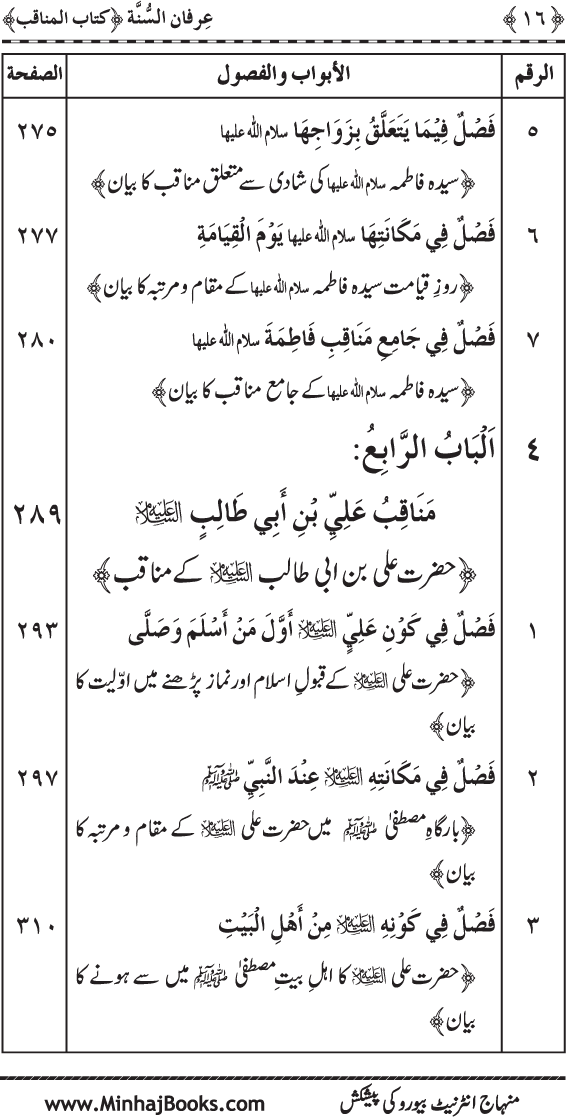 ﴿١٦﴾ عِرفان السُّنَّة ﴿كتاب المناقب﴾
الرقم الأبواب والفصول الصفحة
٥ فَصْلٌ فِيْمَا يَتَعَلَّقُ بِزَوَاجِهَا سلام الله عليها ٢٧٥
﴿سیدہ فاطمہ سلام الله عليها کی شادی سے متعلق مناقب کا بیان﴾
٦ فَصْلٌ فِي مَكَانَتِهَا سلام الله عليها يَوْمَ الْقِيَامَةِ ٢٧٧
﴿روزِ قیامت سیدہ فاطمہ سلام الله عليها کے مقام و مرتبہ کا بیان﴾
٧ فَصْلٌ فِي جَامِعِ مَنَاقِبِ فَاطِمَةَ سلام الله عليها ٢٨٠
﴿سیدہ فاطمہ سلام الله عليها کے جامع مناقب کا بیان﴾
٤ اَلْبَابُ الرَّابِعُ:
مَنَاقِبُ عَلِيِّ بْنِ أَبِي طَالِبٍ عليه السلام ٢٨٩
﴿حضرت علی بن ابی طالب عليه السلام کے مناقب﴾
١ فَصْلٌ فِي كَوْنِ عَلِيٍّ عليه السلام أَوَّلَ مَنْ أَسْلَمَ وَصَلَّى ٢٩٣
﴿حضرت علی عليه السلام کے قبولِ اسلام اور نماز پڑھنے میں اوّلیت کا
بیان﴾
٢ فَصْلٌ فِي مَكَانَتِهِ عليه السلام عِنْدَ النَّبِيِّ ﷺ ٢٩٧
﴿بارگاہِ مصطفیٰ ﷺ میں حضرت علی عليه السلام کے مقام و مرتبہ کا
بیان﴾
٣ فَصْلٌ فِي كَوْنِهِ عليه السلام مِنْ أَهْلِ الْبَيْتِ ٣١٠
﴿حضرت علی عليه السلام کا اہلِ بیتِ مصطفیٰ ﷺ میں سے ہونے کا
بیان﴾
منہاج انٹرنیٹ بیورو کی پیشکش www.MinhajBooks.com